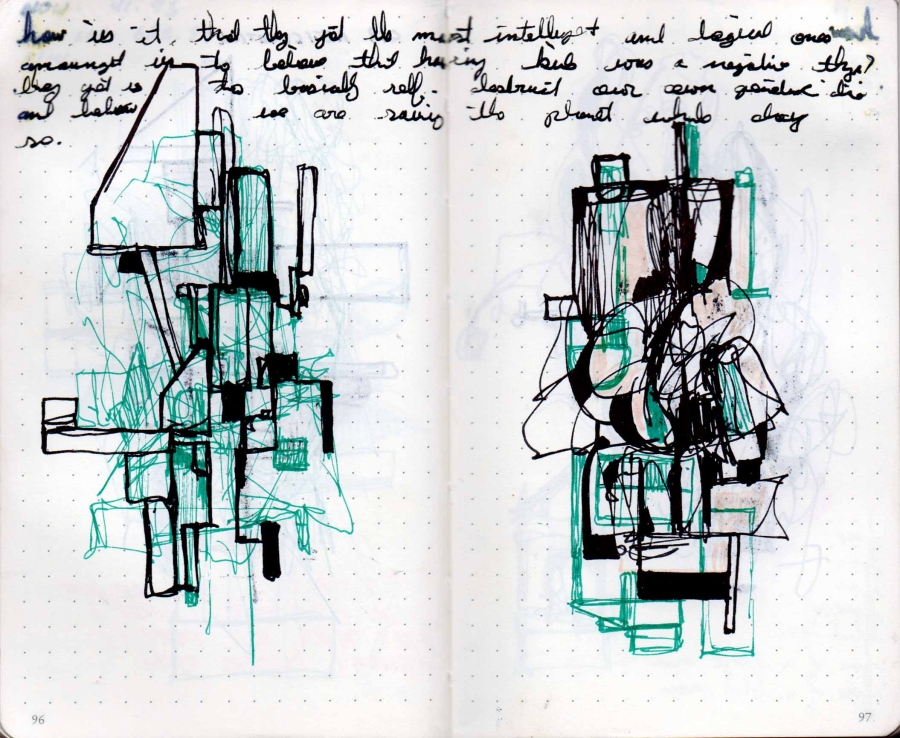 how is it that they got the most intelligent and logical ones
amoungst us to believe that having kids was a negative thing?
they got us to basically self-destruct our own genetic
and believe we are saving the planet while doing
so.
96
97